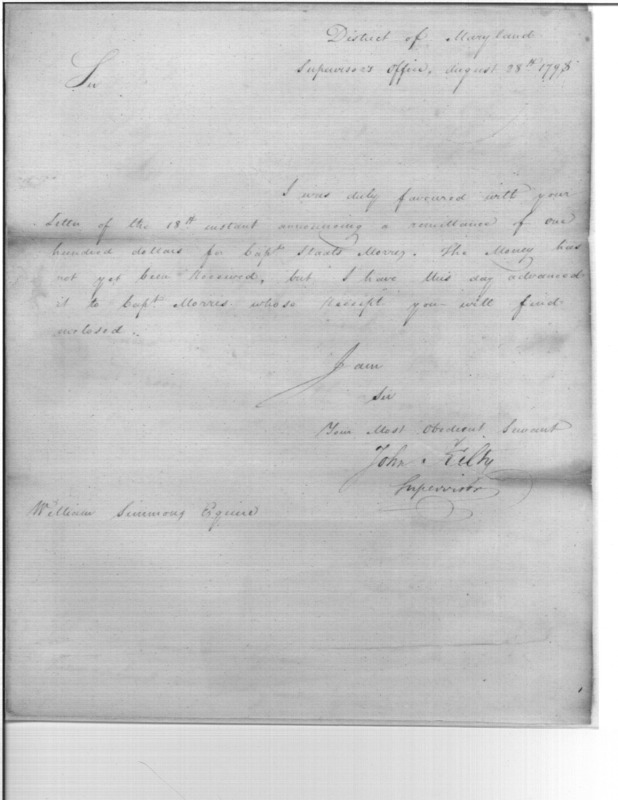 District of Maryland
Supervisor's Office, August 28th 1798
Sir
I was duly favoured with your
Letter of the 18th instant announcing a remittance of one
hundred dollars for Capt. Staats Morris. The Money has
not yet been Received, but I have this day advanced
it to Capt. Morris whose Receipt you will find
inclosed.
I am
Sir
Your Most Obedient Servant
John Kilty
Supervisor
William Simmons Esquire